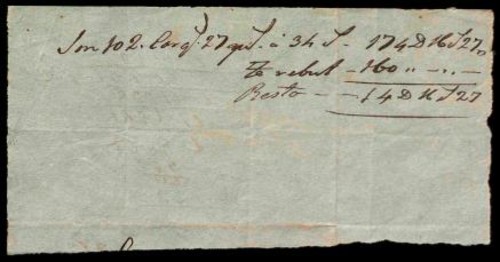 Son 102. Carg. 27 qS. à 34 S - 174 D 16 S 27
Te rebut - 160 ,, - .. -
Resto - - 14 D 16 S 27